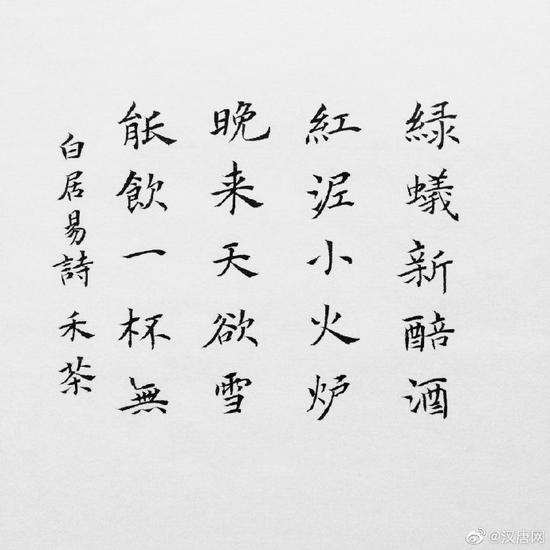 緑蟻新醅酒
紅泥小火炉
晚来天欲雪
能飲一杯無
白居易詩 禾茶
@汉唐网